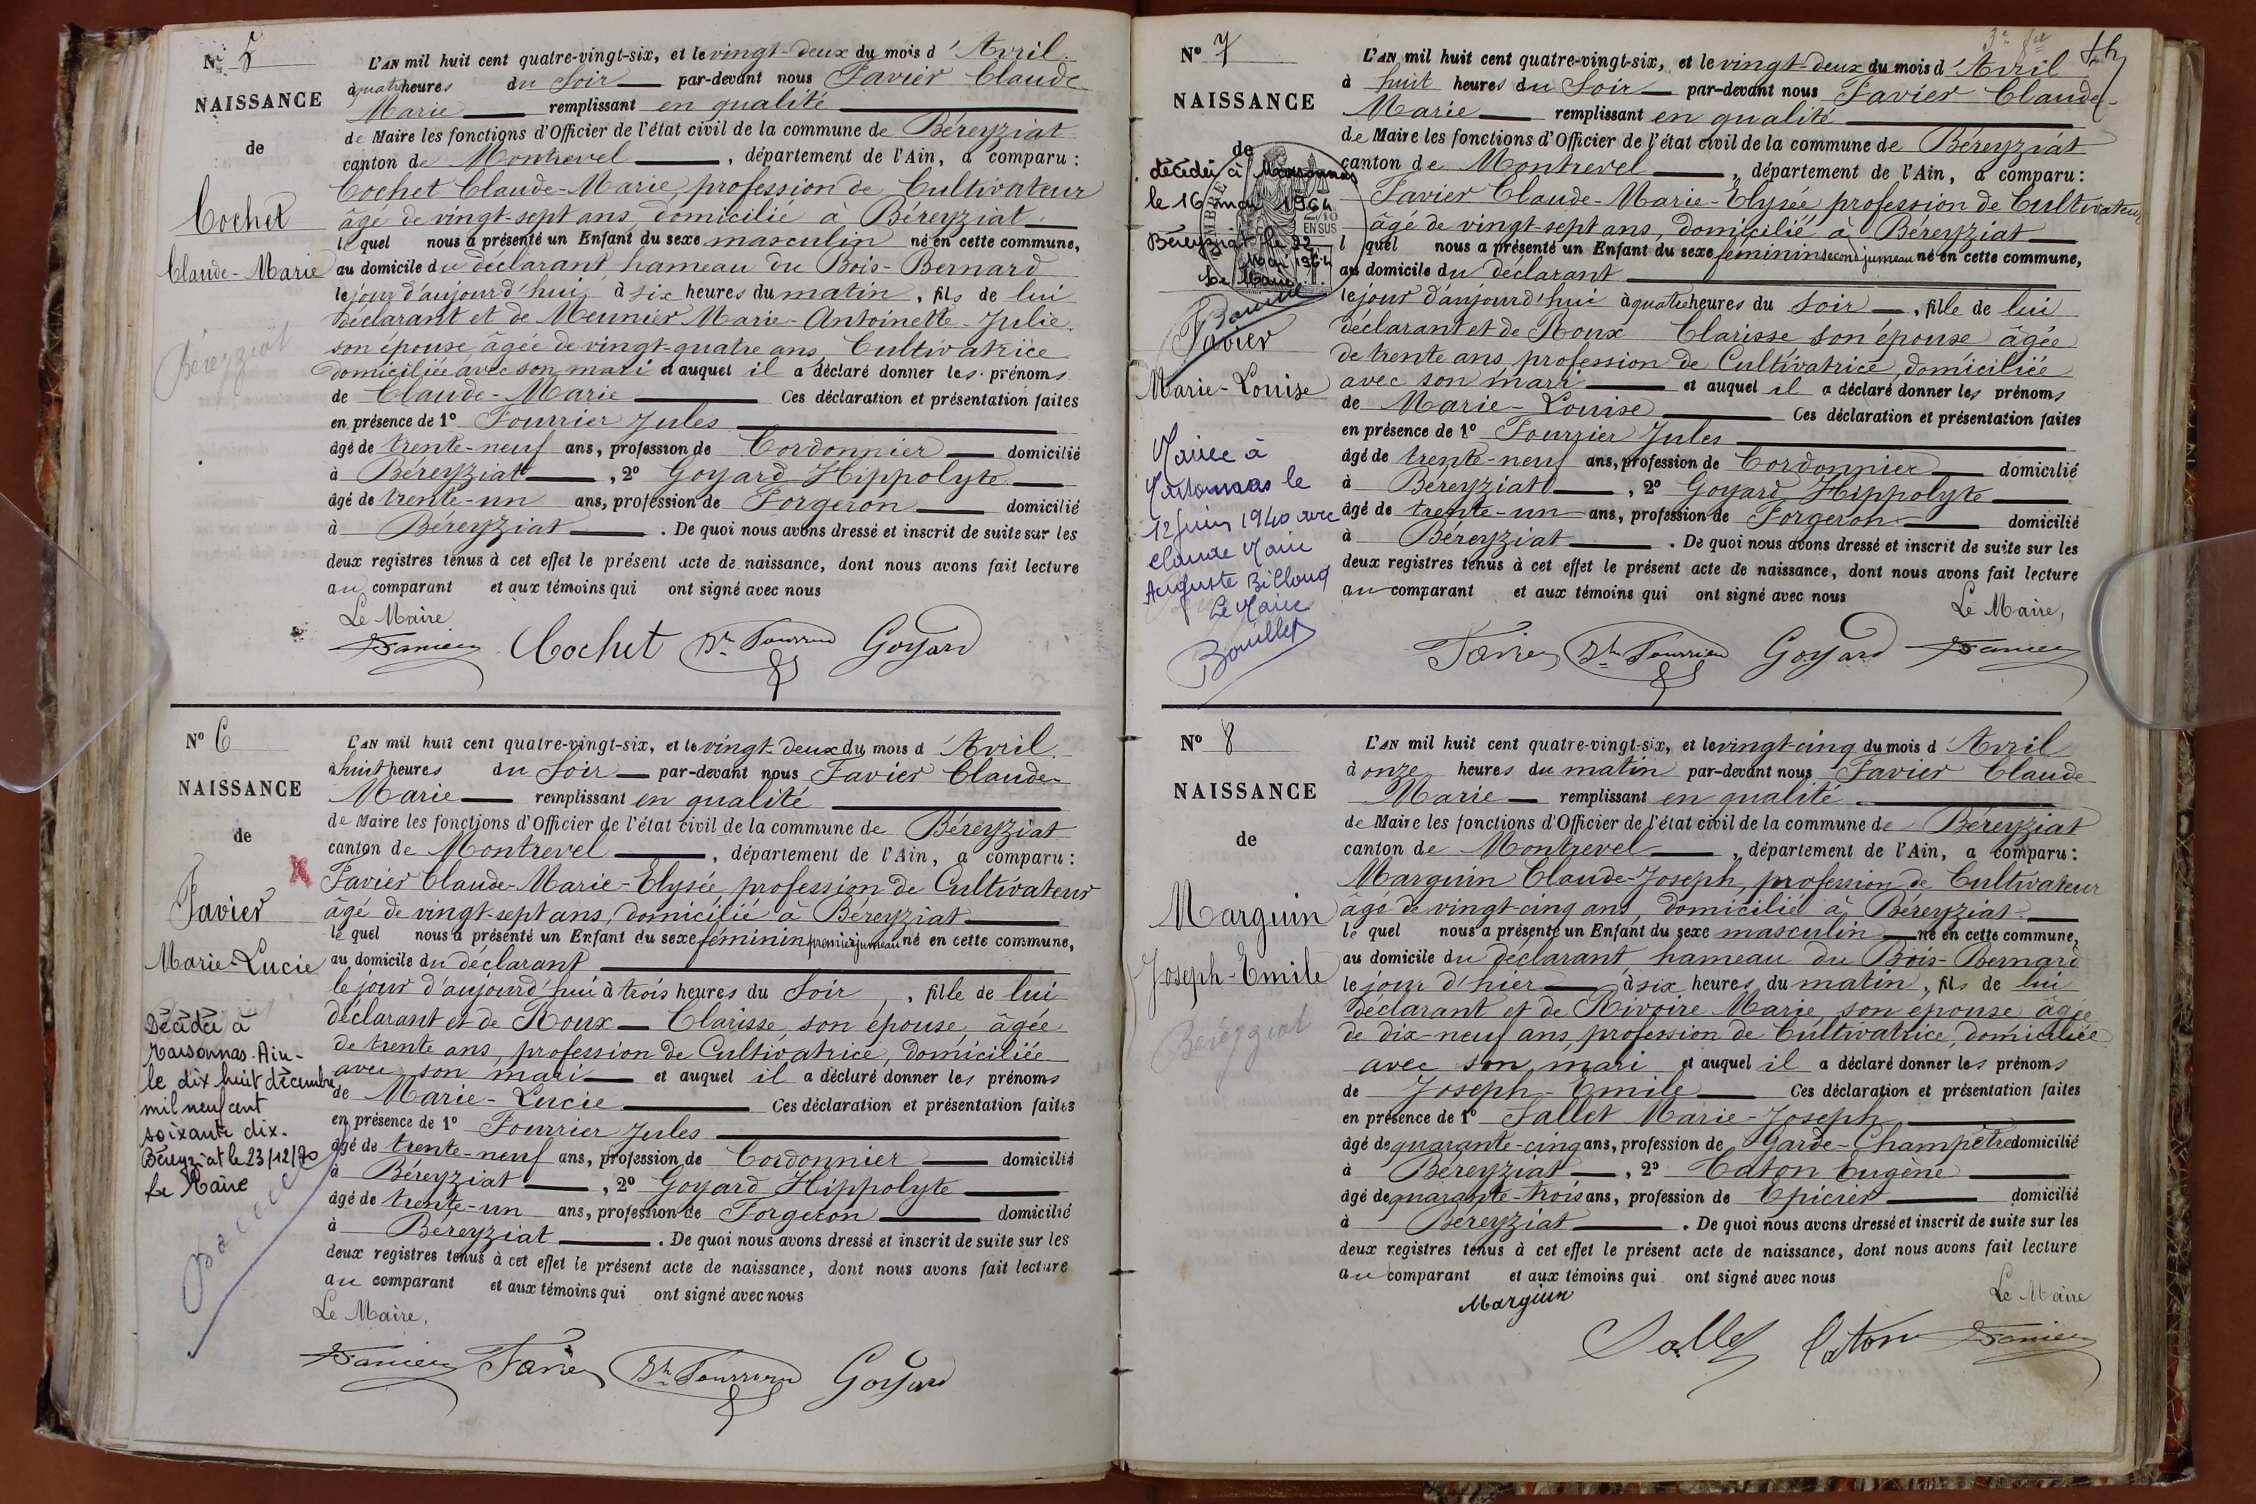 N° 5
NAISSANCE
de
Cochet
Claude-Marie
Béreyziat
L'AN mil huit cent quatre-vingt-six, et le vingt-deux du mois d'Avril
à quatre heures du Soir par-devant nous Favier Claude
Marie remplissant en qualité
de Maire les fonctions d'Officier de l'état civil de la commune de Béreyziat
canton de Montrevel, département de l'Ain, a comparu :
Cochet Claude-Marie, profession de Cultivateur
âgé de vingt-sept ans, domicilié à Béreyziat
lequel nous a présenté un Enfant du sexe masculin né en cette commune,
au domicile du déclarant hameau du Bois-Bernard
le jour d'aujourd'hui à six heures du matin, fils de lui
déclarant et de Meunier Marie-Antoinette-Julie
son épouse âgée de vingt-quatre ans, Cultivatrice
domiciliée avec son mari et auquel il a déclaré donner les prénoms
de Claude-Marie Ces déclaration et présentation faites
en présence de 1° Fourrier Jules
âgé de trente-neuf ans, profession de Cordonnier domicilié
à Béreyziat, 2° Goyard Hippolyte
âgé de trente-un ans, profession de Forgeron domicilié
à Béreyziat. De quoi nous avons dressé et inscrit de suite sur les
deux registres tenus à cet effet le présent acte de naissance, dont nous avons fait lecture
au comparant et aux témoins qui ont signé avec nous
Le Maire
Favier Cochet Fourrier Goyard
N° 6
NAISSANCE
de
Favier
Marie-Lucie
Décédée à
Marsonnas-Ain-
le dix huit décembre
mil neuf cent
soixante dix.
Béreyziat le 23/12/70
Le Maire
L'AN mil huit cent quatre-vingt-six, et le vingt-deux du mois d'Avril
à huit heures du Soir par-devant nous Favier Claude-
Marie remplissant en qualité
de Maire les fonctions d'Officier de l'état civil de la commune de Béreyziat
canton de Montrevel, département de l'Ain, a comparu :
Favier Claude-Marie-Elysée profession de Cultivateur
âgé de vingt-sept ans, domicilié à Béreyziat
lequel nous a présenté un Enfant du sexe féminin premier jumeau né en cette commune,
au domicile du déclarant
le jour d'aujourd'hui à trois heures du Soir, fille de lui
déclarant et de Roux Clarisse son épouse, âgée
de trente ans, profession de Cultivatrice, domiciliée
avec son mari et auquel il a déclaré donner les prénoms
de Marie-Lucie Ces déclaration et présentation faites
en présence de 1° Fourrier Jules
âgé de trente-neuf ans, profession de Cordonnier domicilié
à Béreyziat, 2° Goyard Hippolyte
âgé de trente-un ans, profession de Forgeron domicilié
à Béreyziat. De quoi nous avons dressé et inscrit de suite sur les
deux registres tenus à cet effet le présent acte de naissance, dont nous avons fait lecture
au comparant et aux témoins qui ont signé avec nous
Le Maire,
Favier Favier Fourrier Goyard
N° 7
NAISSANCE
de
décédée à Marsonnas
le 16 mai 1964
Béreyziat le 22
mai 1964
Le Maire
Favier
Marie-Louise
Mariée à
Marsonnas le
12 juin 1940 avec
Claude Marie
Auguste Billoud
Le Maire
Bouillet
L'AN mil huit cent quatre-vingt-six, et le vingt-deux du mois d'Avril
à huit heures du Soir par-devant nous Favier Claude-
Marie remplissant en qualité
de Maire les fonctions d'Officier de l'état civil de la commune de Béreyziat
canton de Montrevel, département de l'Ain, a comparu :
Favier Claude-Marie-Elysée profession de Cultivateur
âgé de vingt-sept ans, domicilié à Béreyziat
lquel nous a présenté un Enfant du sexe féminin second jumeau né en cette commune,
au domicile du déclarant
le jour d'aujourd'hui à quatre heures du Soir, fille de lui
déclarant et de Roux Clarisse son épouse âgée
de trente ans, profession de Cultivatrice, domiciliée
avec son mari et auquel il a déclaré donner les prénoms
de Marie-Louise Ces déclaration et présentation faites
en présence de 1° Fourrier Jules
âgé de trente-neuf ans, profession de Cordonnier domicilié
à Béreyziat, 2° Goyard Hippolyte
âgé de trente-un ans, profession de Forgeron domicilié
à Béreyziat. De quoi nous avons dressé et inscrit de suite sur les
deux registres tenus à cet effet le présent acte de naissance, dont nous avons fait lecture
au comparant et aux témoins qui ont signé avec nous
Le Maire,
Favier Fourrier Goyard Favier
N° 8
NAISSANCE
de
Marguin
Joseph-Emile
Béreyziat
L'AN mil huit cent quatre-vingt-six, et le vingt-cinq du mois d'Avril
à onze heures du matin par-devant nous Favier Claude
Marie remplissant en qualité
de Maire les fonctions d'Officier de l'état civil de la commune de Béreyziat
canton de Montrevel, département de l'Ain, a comparu :
Marguin Claude-Joseph, profession de Cultivateur
âgé de vingt-cinq ans, domicilié à Béreyziat
lequel nous a présenté un Enfant du sexe masculin né en cette commune,
au domicile du déclarant hameau du Bois-Bernard
le jour d'hier à six heures du matin, fils de lui
déclarant et de Rivoire Marie, son épouse âgée
de dix-neuf ans, profession de Cultivatrice, domiciliée
avec son mari et auquel il a déclaré donner les prénoms
de Joseph-Emile Ces déclaration et présentation faites
en présence de 1° Sallet Marie-Joseph
âgé de quarante-cinq ans, profession de Garde-Champêtre domicilié
à Béreyziat, 2° Caton Eugène
âgé de quarante-trois ans, profession de Epicier domicilié
à Béreyziat. De quoi nous avons dressé et inscrit de suite sur les
deux registres tenus à cet effet le présent acte de naissance, dont nous avons fait lecture
au comparant et aux témoins qui ont signé avec nous
Le Maire
Marguin
Sallet Caton Favier